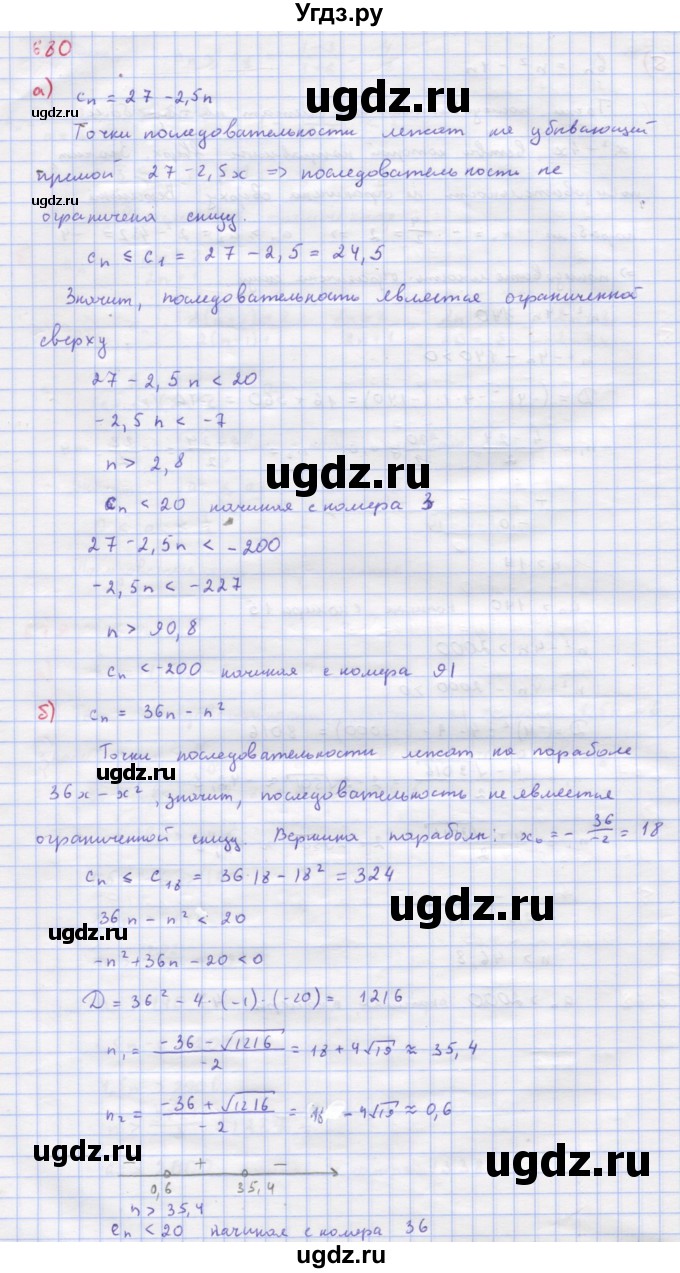 Угдз.ру
680
а) cₙ = 27 - 2,5n
ugdz.ru
ugdz.ru
Точки последовательности лежат на убывающей
прямой 27 - 2,5x => последовательность не
ugdz.ru
ограничена снизу.
cₙ ≤ c₁ = 27 - 2,5 = 24,5
Значит, последовательность является ограниченной
сверху
27 - 2,5n < 20
-2,5n < -7
n > 2,8
ugdz.ru
cₙ < 20 начиная с номера 3
27 - 2,5n < -200
-2,5n < -227
n > 90,8
cₙ < -200 начиная с номера 91
б) cₙ = 36n - n²
Точки последовательности лежат на параболе
ugdz.ru
36x - x², значит, последовательность не является
ограниченной снизу. Вершина параболы: x₀ = - 36/-2 = 18
cₙ ≤ c₁₈ = 36·18 - 18² = 324
ugdz.ru
36n - n² < 20
ugdz.ru
-n² + 36n - 20 < 0
D = 36² - 4·(-1)·(-20) = 1216
n₁ = (-36 - √1216)/-2 = 18 + 4√19 ≈ 35,4
n₂ = (-36 + √1216)/-2 = 18 - 4√19 ≈ 0,6
ugdz.ru
ugdz.ru
- + -
0,6 35,4
n > 35,4
cₙ < 20 начиная с номера 36
ugdz.ru